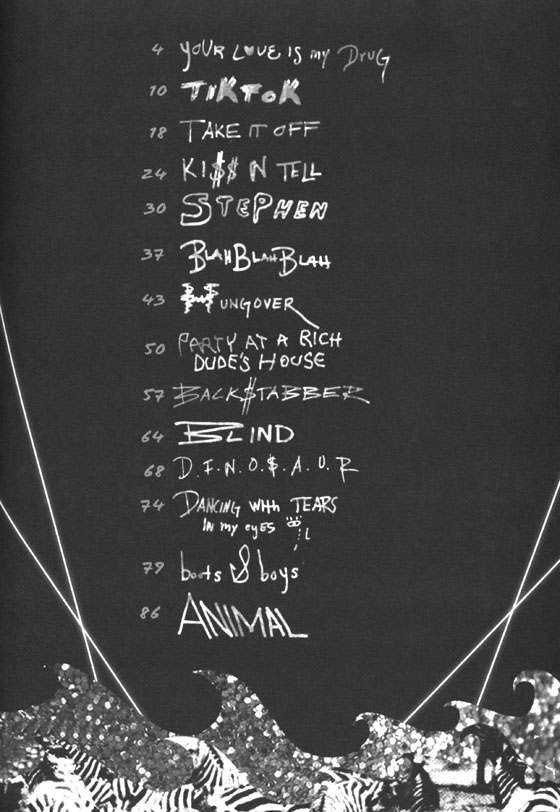 4 YOUR LOVE IS my DRUG
10 TiKToK
18 TAKE IT OFF
24 KI$$ N TELL
30 STEPHEN
37 BLAHBLAHBLAH
43 HUNGOVER
50 PARTY AT A RICH
DUDE'S HOUSE
57 BACK$TABBER
64 BLIND
68 D.I.N.O.$.A.U.R
74 DANCING WITH TEARS
IN my eyES
79 boots & boys
86 ANIMAL